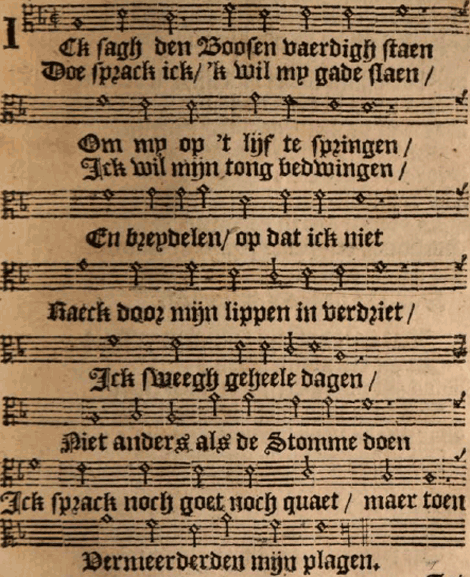 ICk sagh den Boosen vaerdigh staen
Doe sprack ick/ 'k wil my gade slaen /
Om my op 't lijf te springen /
Ick wil mijn tong bedwingen /
En breydelen/ op dat ick niet
Raeck door mijn lippen in verdriet /
Ick sweegh geheele dagen /
Niet anders als de Stomme doen
Ick sprack noch goet noch quaet / maer toen
Vermeerderden mijn plagen.